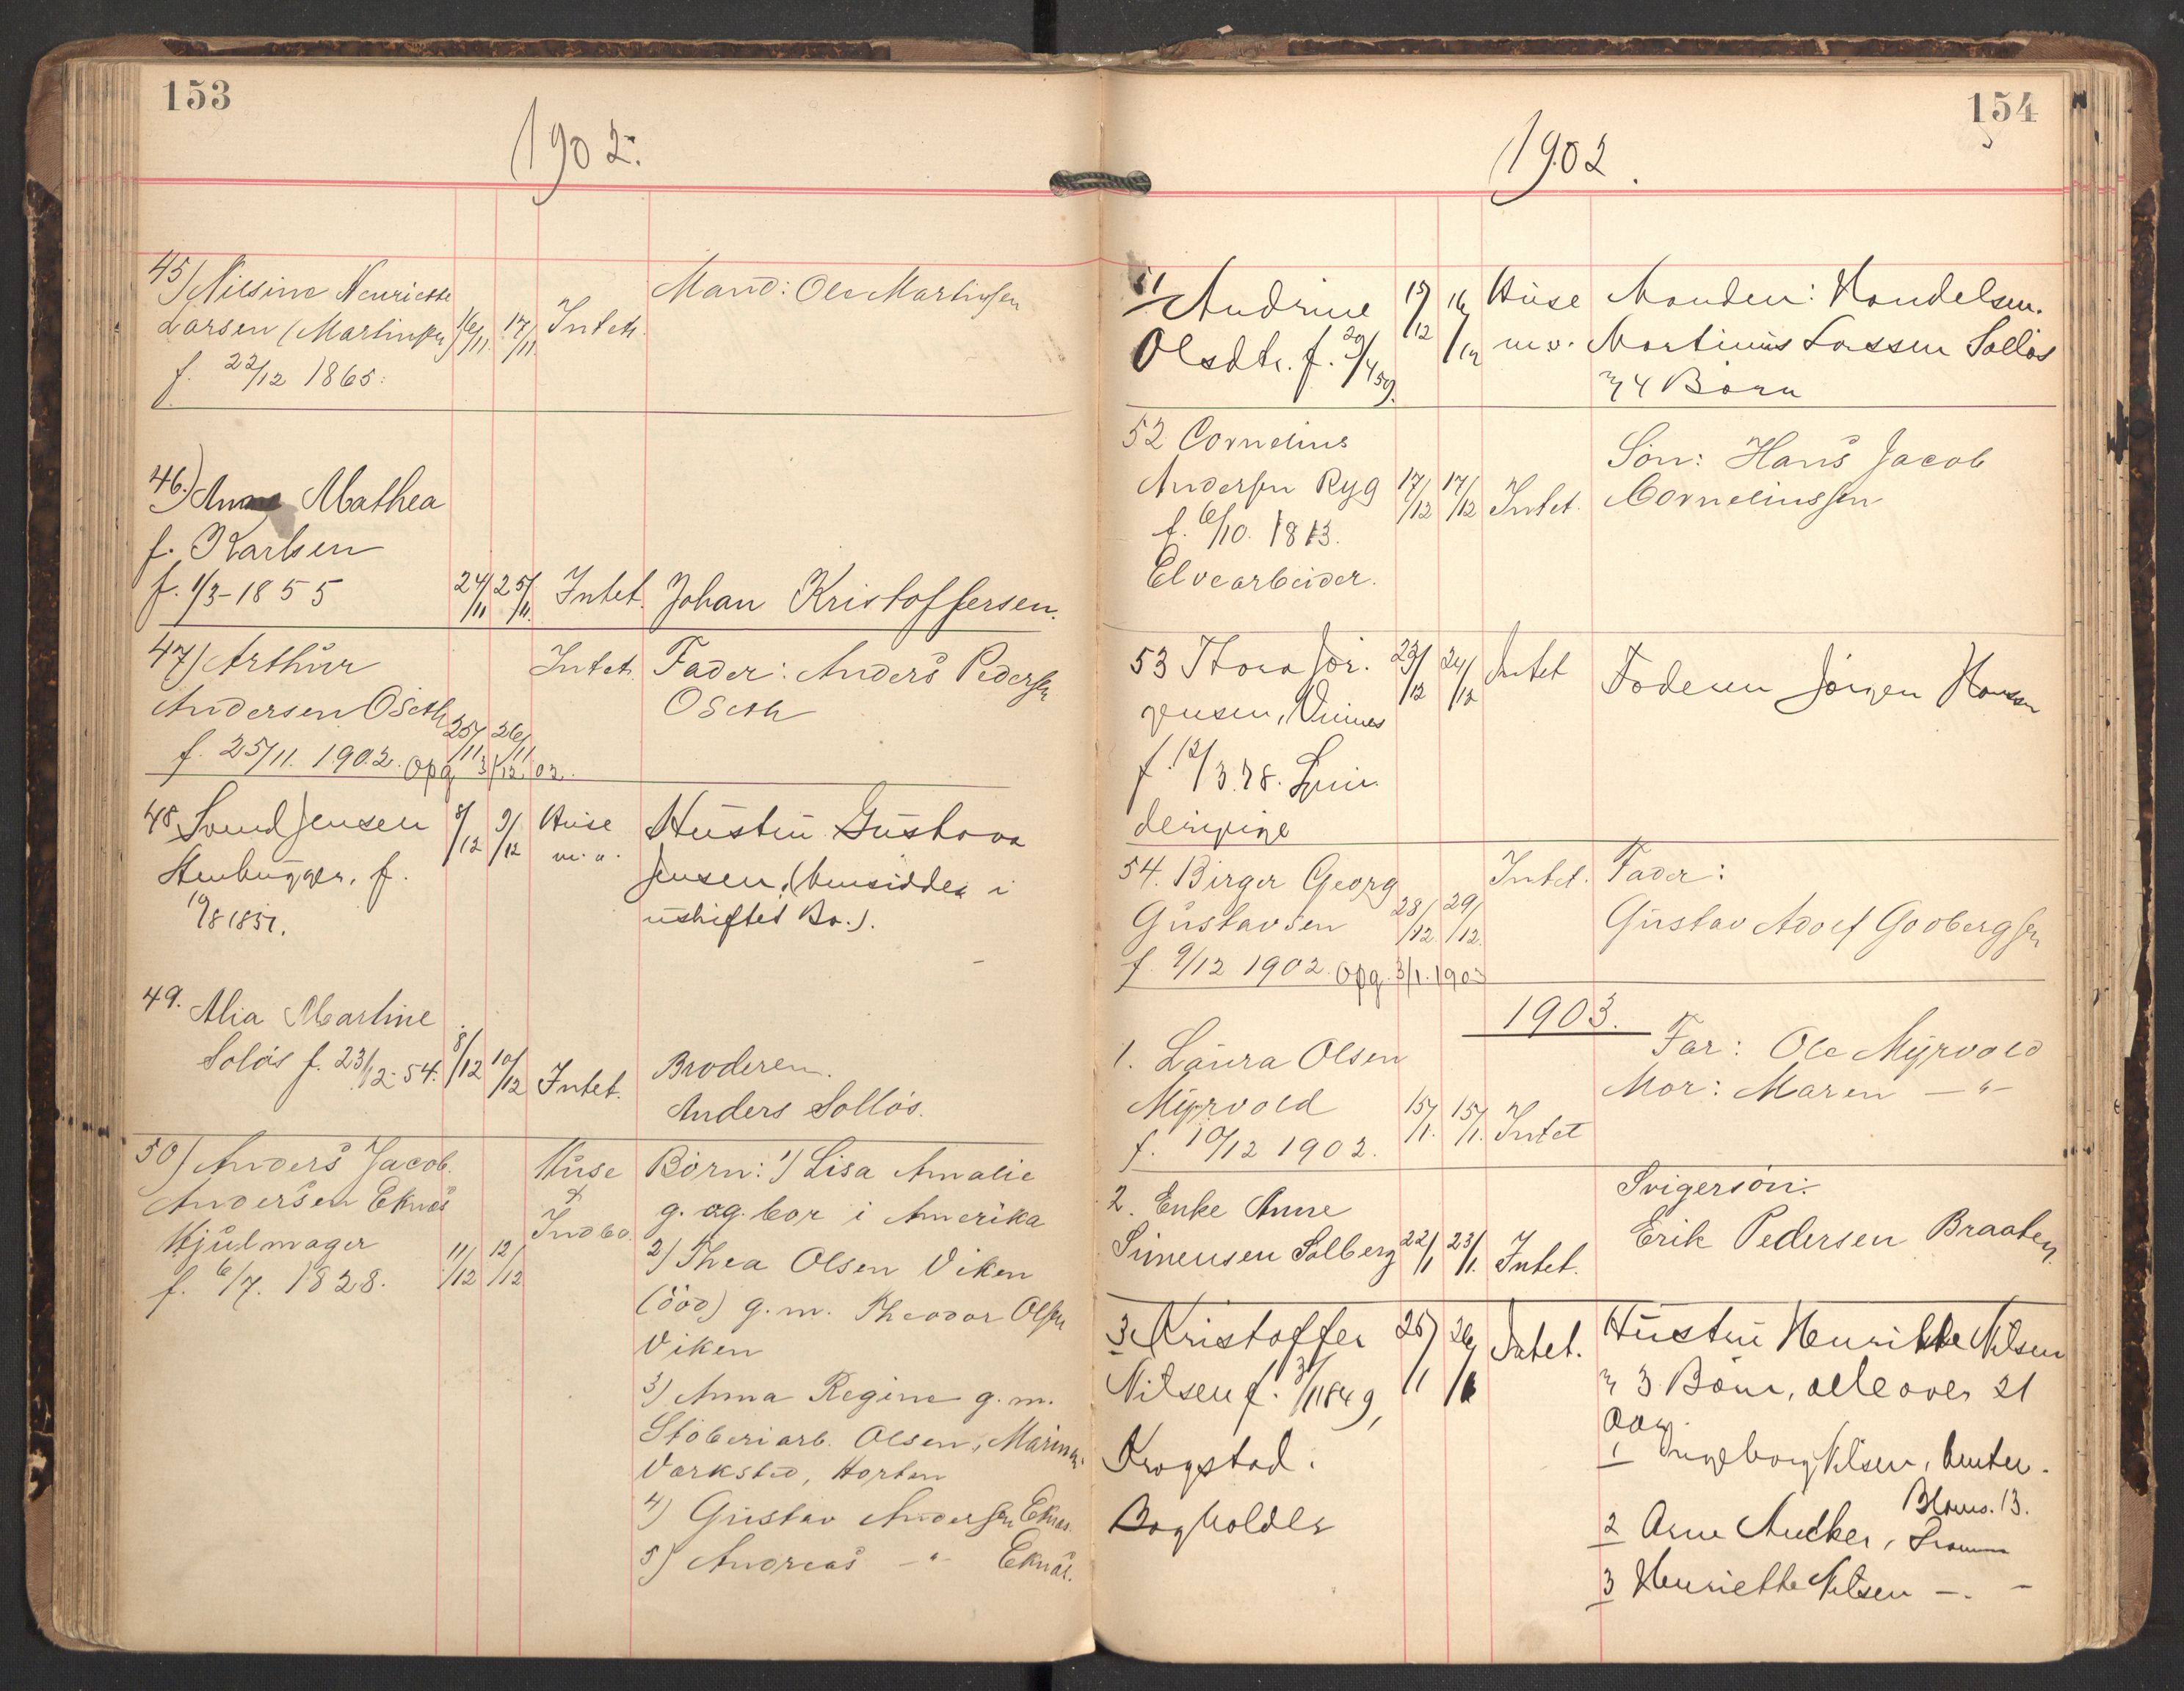 153
1902.
45) Nilsine Henriette
Larsen (Martinsen) 16/11. 17/11. Intet. Mand: Ole Martinsen
f. 22/12 1865.
46.) Anne Mathea
f. Karlsen
f. 1/3-1855 24/11 25/11. Intet. Johan Kristoffersen.
47) Arthur Intet. Fader: Anders Pedersen
Andersen Oseth 25/11 26/11 Oseth
f. 25/11. 1902. Opg 3/12 02.
48 Svend Jensen 8/12 9/12 Huse Hustru Gustava
Stenhugger, f. m. v. Jensen, (hensidder i
19/8 1851. uskiftet Bo.).
49. Alia Martine
Solös f. 23/12-54. 8/12 10/12 Intet. Broderen.
Anders Sollös.
50) Anders Jacob. Huse Börn: 1) Lisa Amalie
Andersen Eknäs & Indbo. g. og bor i Amerika
Hjulmager 11/12 12/12 2) Thea Olsen Viken
f. 6/7. 1828. (död) g. m. Theodor Olsen
Viken
3) Anna Regine g. m.
Stöberiarb. Olsen, Marinens
Værksted, Horten
4) Gustav Andersen Eknäs.
5) Andreas -"- Eknäs.
154
1902.
51 Andrine 15/12 16/12 Huse Manden: Handelsm.
Olsdtr. f. 20/4 59. m. v. Martinius Larssen Sollös
& 4 Börn
52 Cornelius Sön: Hans Jacob
Andersen Ryg 17/12 17/12 Intet. Corneliussen
f. 6/10. 1813.
Elvearbeider.
53 Thora Jör- 23/12 24/12 Intet Faderen Jörgen Hansen
gensen,
f. 12/3.78.
54. Birger Georg Intet. Fader:
Gustavsen 28/12 29/12. Gustav Adolf Godbergsen
f. 9/12 1902. Opg. 3/1. 1903
1903.
1. Laura Olsen Far: Ole Myrvold
Myrvold 15/1. 15/1. Intet Mor: Maren -"-
f. 10/12 1902.
2. Enke Anne Svigersön:
Simensen Solberg 22/1 23/1. Intet. Erik Pedersen Braaten.
3. Kristoffer 25/1 26/1 Intet. Hustru Henrikke Nilsen
Nilsen f. 3/1 1849, & 3 Börn, alle over 21
Krogstad. Aar.
1 Ingeborg Nilsen,
Bogholder
2 Arne
3 Henriette Nilsen -. -